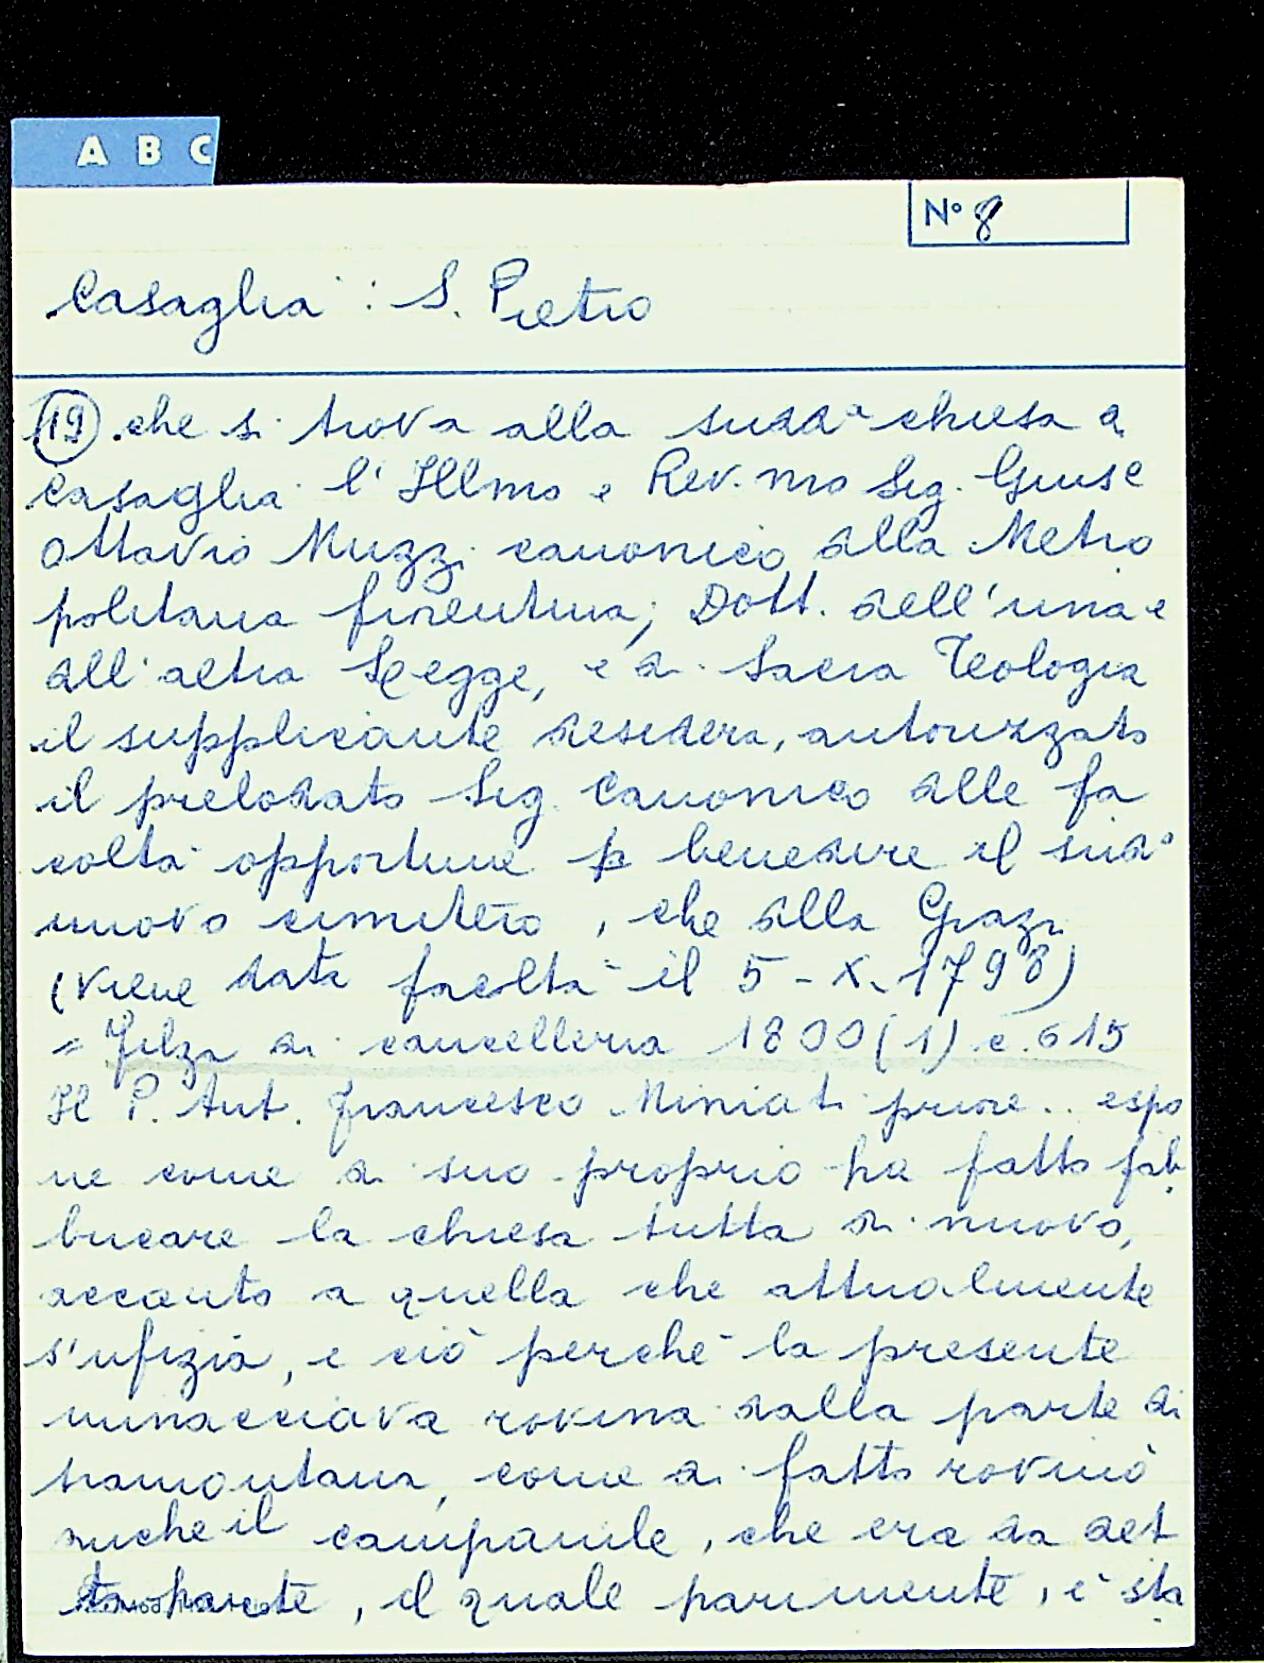 A B C
N° 8
Casaglia : S. Pietro
(19) che si trova alla sudd.ª chiesa di
Casaglia l'Illmo e Rev.mo Sig. Giuse
Ottavio Muzzi canonico della Metro
politana fiorentina, Dott. dell'una e
dell'altra Legge, e di Sacra Teologia
il supplicante desidera, autorizzato
il prelodato Sig. Canonico delle fa
coltà opportune p benedire il sud°
nuovo cimitero, che della Grazi
(viene data facoltà il 5-X-1798)
= Filza di cancelleria 1800 (1) c. 615
Il P. Ant. Francesco Miniati priore.. espo
ne come di suo proprio ha fatto fab
bricare la chiesa tutta di nuovo,
accanto a quella che attualmente
s'ufizia, e ciò perché la presente
minacciava rovina dalla parte di
tramontana, come di fatto rovinò
anche il campanile, che era da det
ta parte, il quale parimente, è sta